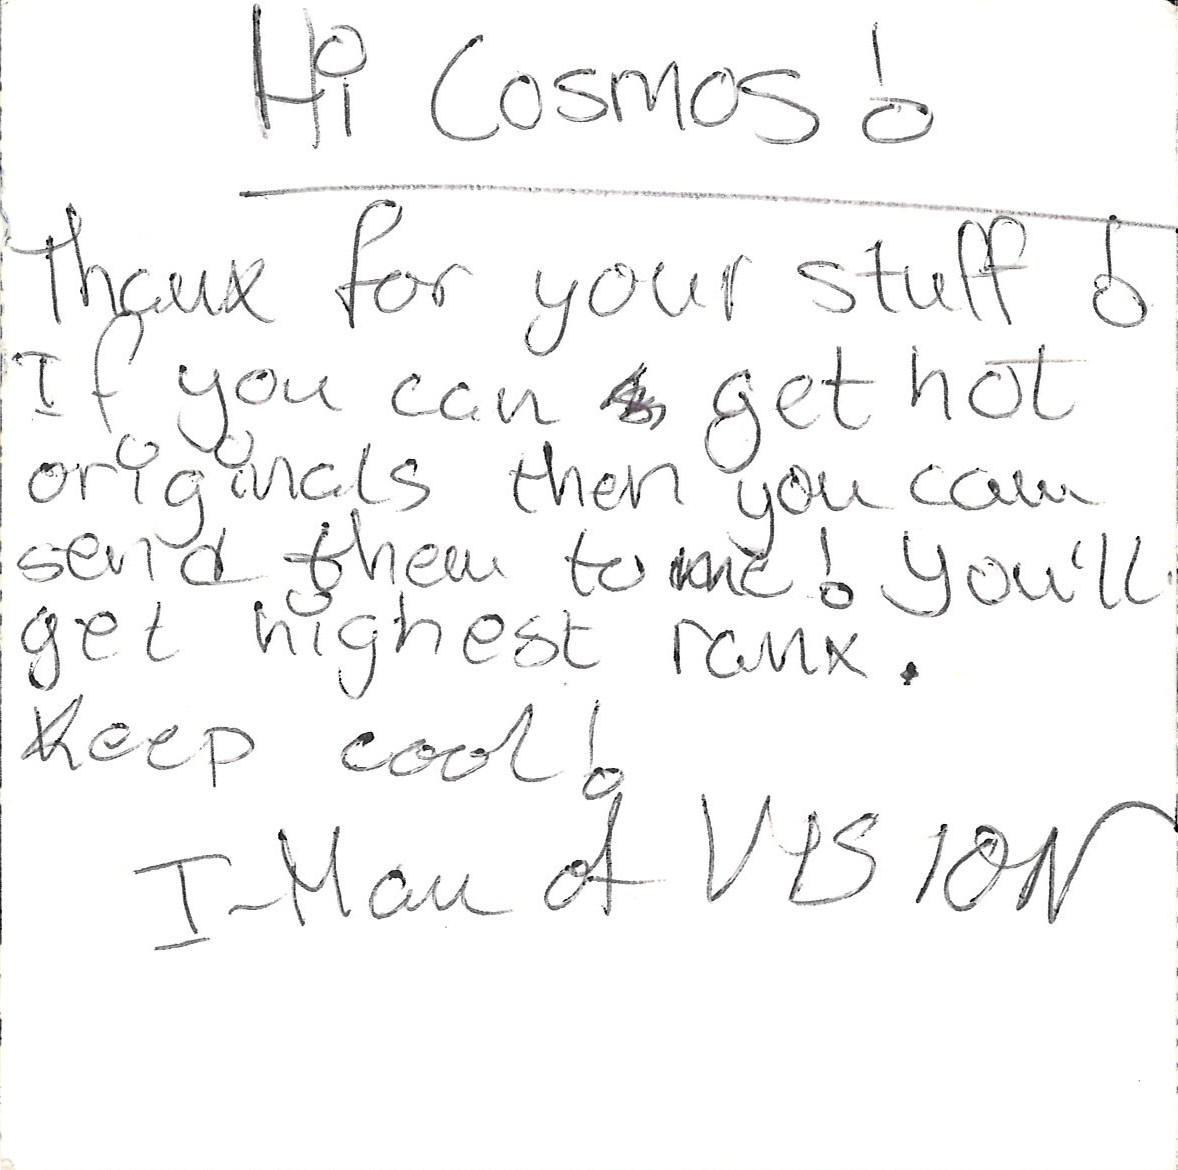 Hi Cosmos!
Thanx for your stuff!
If you can get hot
originals then you can
send them to me! You'll
get highest ranx.
Keep cool!
I-Man of VISION